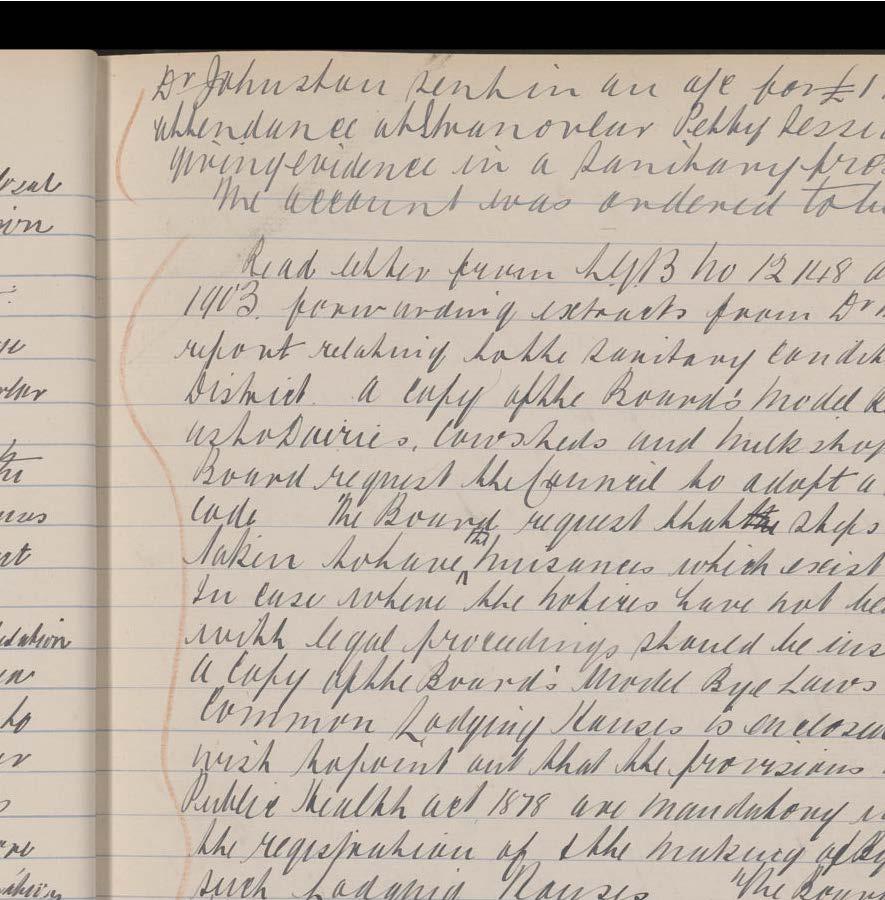 Dr Johnston sent in an a/c for £1
attendance at Stranorlar Petty Sessi
giving evidence in a Sanitary pros
The account was ordered to be
Read letter from LGB No 12148
1903. forwarding extracts from Dr
report relating to the sanitary condit
District. A copy of the Board's Model
as to Dairies, Cowsheds and Milkshop
Board request the Council to adopt a
Code The Board request that steps
taken to have the nuisances which exist
In case where the notices have not be
with legal proceedings should be ins
A Copy of the Board's Model Bye Laws
Common Lodging Houses is enclosed
wish to point out that the provisions
Public Health act 1878 are mandatory
the registration of & the making of By
such Lodging Houses The Board